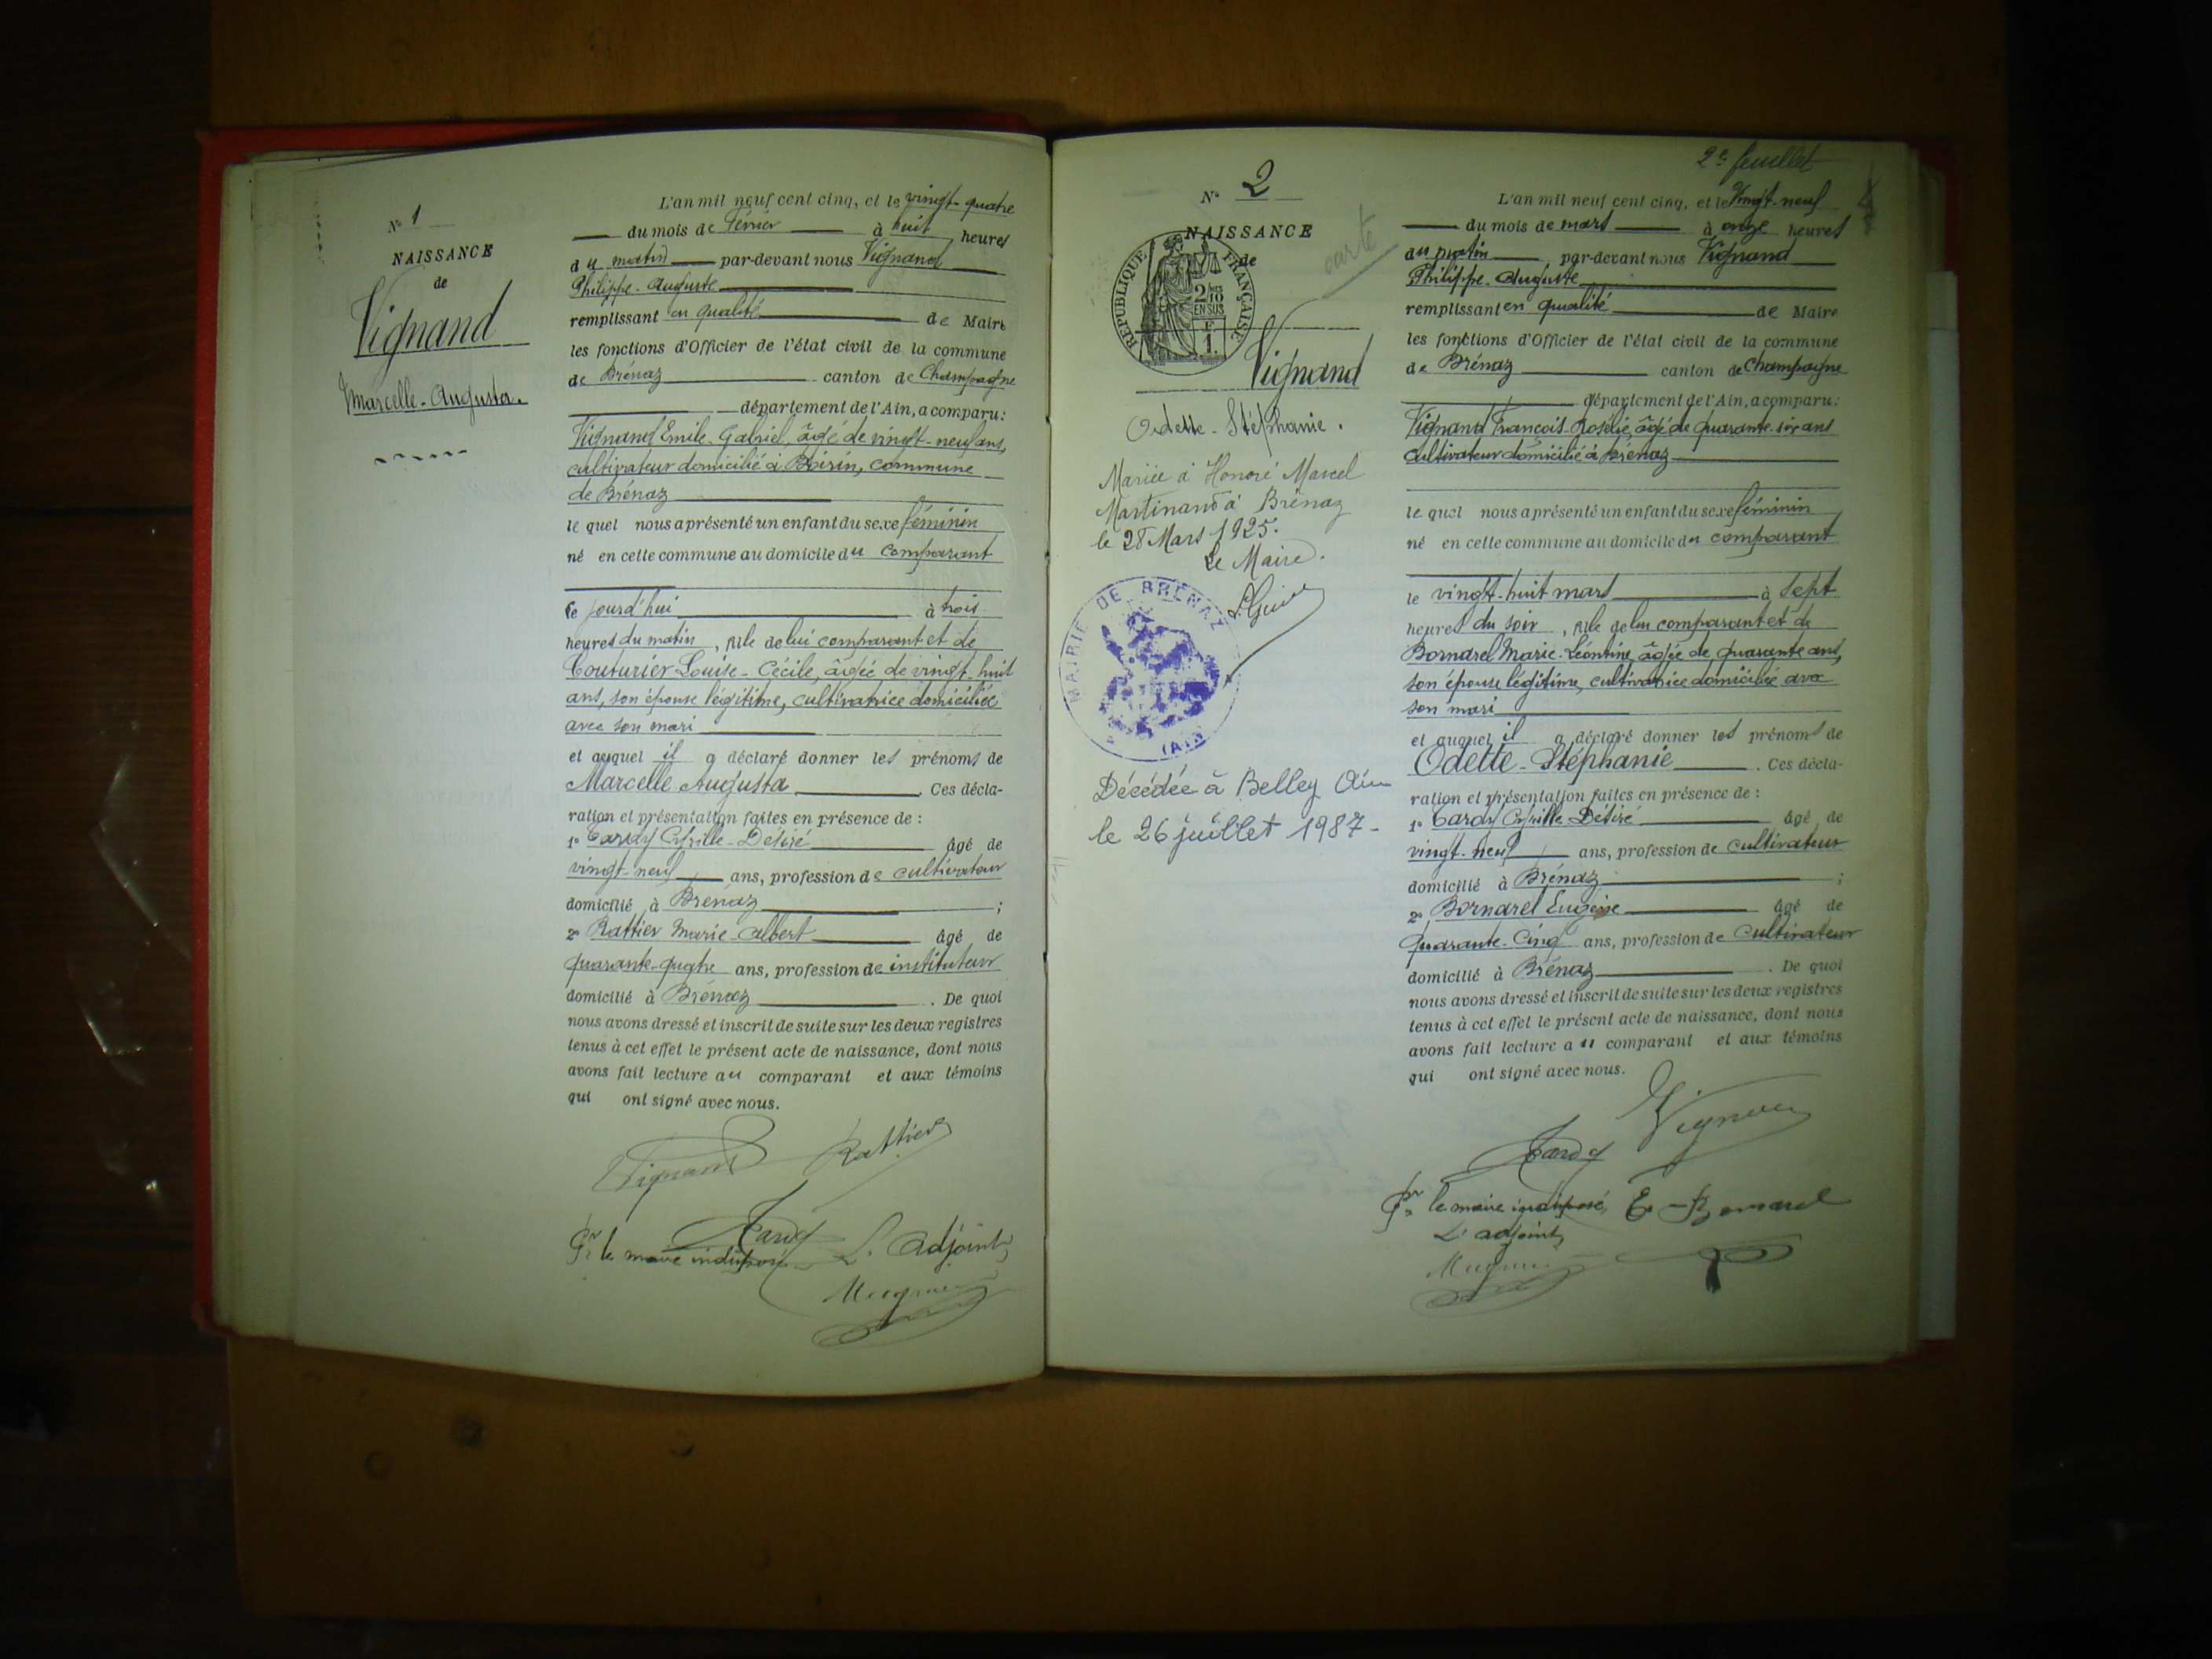 N° 1
NAISSANCE
de
Vignand
Marcelle-Augusta.
L'an mil neuf cent cinq, et le vingt-quatre
du mois de Février à huit heures
du matin par-devant nous Vignand
Philippe-Auguste
remplissant en qualité de Maire
les fonctions d'Officier de l'état civil de la commune
de Brénaz canton de Champagne
département de l'Ain, a comparu:
Vignand Emile-Gabriel, âgé de vingt-neuf ans,
cultivateur domicilié à commune
de Brénaz
le quel nous a présenté un enfant du sexe féminin
né en cette commune au domicile du comparant
ce jourd'hui à trois
heures du matin, fille de lui comparant et de
Couturier Louise-Cécile, âgée de vingt-huit
ans, son épouse légitime, cultivatrice domiciliée
avec son mari
et auquel il a déclaré donner les prénoms de
Marcelle-Augusta. Ces décla-
ration et présentation faites en présence de :
1° Désiré âgé de
vingt-neuf ans, profession de cultivateur
domicilié à Brénaz ;
2° Rattier Marie-Albert âgé de
quarante-quatre ans, profession de instituteur
domicilié à Brénaz. De quoi
nous avons dressé et inscrit de suite sur les deux registres
tenus à cet effet le présent acte de naissance, dont nous
avons fait lecture au comparant et aux témoins
qui ont signé avec nous.
Vignand Rattier
Pr le maire indisposé L'adjoint
2e feuillet
N° 2
NAISSANCE
de
RÉPUBLIQUE FRANÇAISE
2/10
EN SUS
F.
1.
carte
Vignand
Odette-Stéphanie.
Mariée à Honoré Marcel
Martinand à Brénaz
le 28 Mars 1925.
Le Maire.
MAIRIE DE BRENAZ
(AIN)
Décédée à Belley Ain
le 26 juillet 1987-
L'an mil neuf cent cinq, et le Vingt-neuf
du mois de mars à onze heures
du matin, par-devant nous Vignand
Philippe-Auguste
remplissant en qualité de Maire
les fonctions d'Officier de l'état civil de la commune
de Brénaz canton de Champagne
département de l'Ain, a comparu:
Vignand François âgé de quarante-six ans
cultivateur domicilié à Brénaz
le quel nous a présenté un enfant du sexe féminin
né en cette commune au domicile du comparant
le vingt-huit mars à sept
heures du soir, fille de lui comparant et de
Bornarel Marie-Léontine, âgée de quarante ans,
son épouse légitime, cultivatrice domiciliée avec
son mari
et auquel il a déclaré donner les prénoms de
Odette-Stéphanie. Ces décla-
ration et présentation faites en présence de :
1° Désiré âgé de
vingt-neuf ans, profession de cultivateur
domicilié à Brénaz ;
2° Bornarel Eugène âgé de
quarante-cinq ans, profession de cultivateur
domicilié à Brénaz. De quoi
nous avons dressé et inscrit de suite sur les deux registres
tenus à cet effet le présent acte de naissance, dont nous
avons fait lecture au comparant et aux témoins
qui ont signé avec nous.
Pr le maire indisposé, E. Bornarel
L'adjoint,